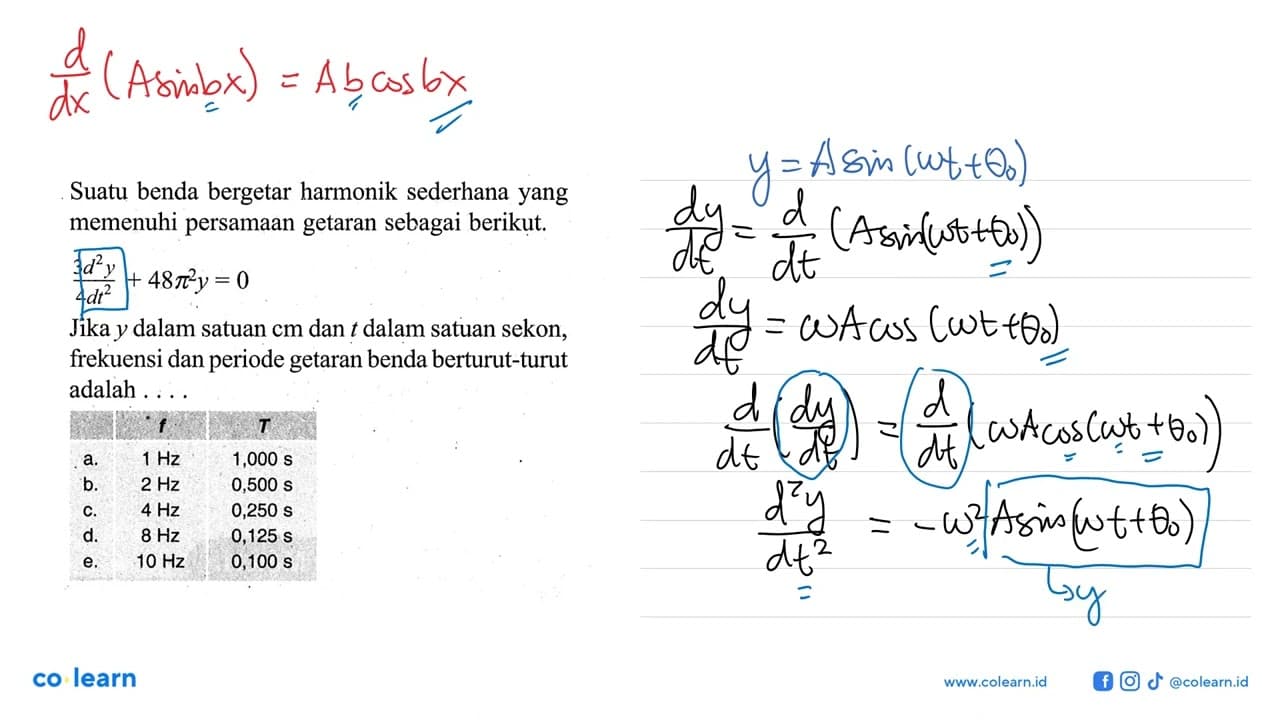 d/dx (A sin bx) = A b cos bx
Suatu benda bergetar harmonik sederhana yang
memenuhi persamaan getaran sebagai berikut.
3d²y/4dt² + 48π²y = 0
Jika y dalam satuan cm dan t dalam satuan sekon,
frekuensi dan periode getaran benda berturut-turut
adalah . . . .
f T
a. 1 Hz 1,000 s
b. 2 Hz 0,500 s
c. 4 Hz 0,250 s
d. 8 Hz 0,125 s
e. 10 Hz 0,100 s
y = A sin (ωt + θ₀)
dy/dt = d/dt (A sin(ωt + θ₀))
dy/dt = ωA cos (ωt + θ₀)
d/dt (dy/dt) = d/dt (ωA cos(ωt + θ₀))
d²y/dt² = -ω² A sin(ωt + θ₀)
↳ y
co learn
www.colearn.id
@colearn.id